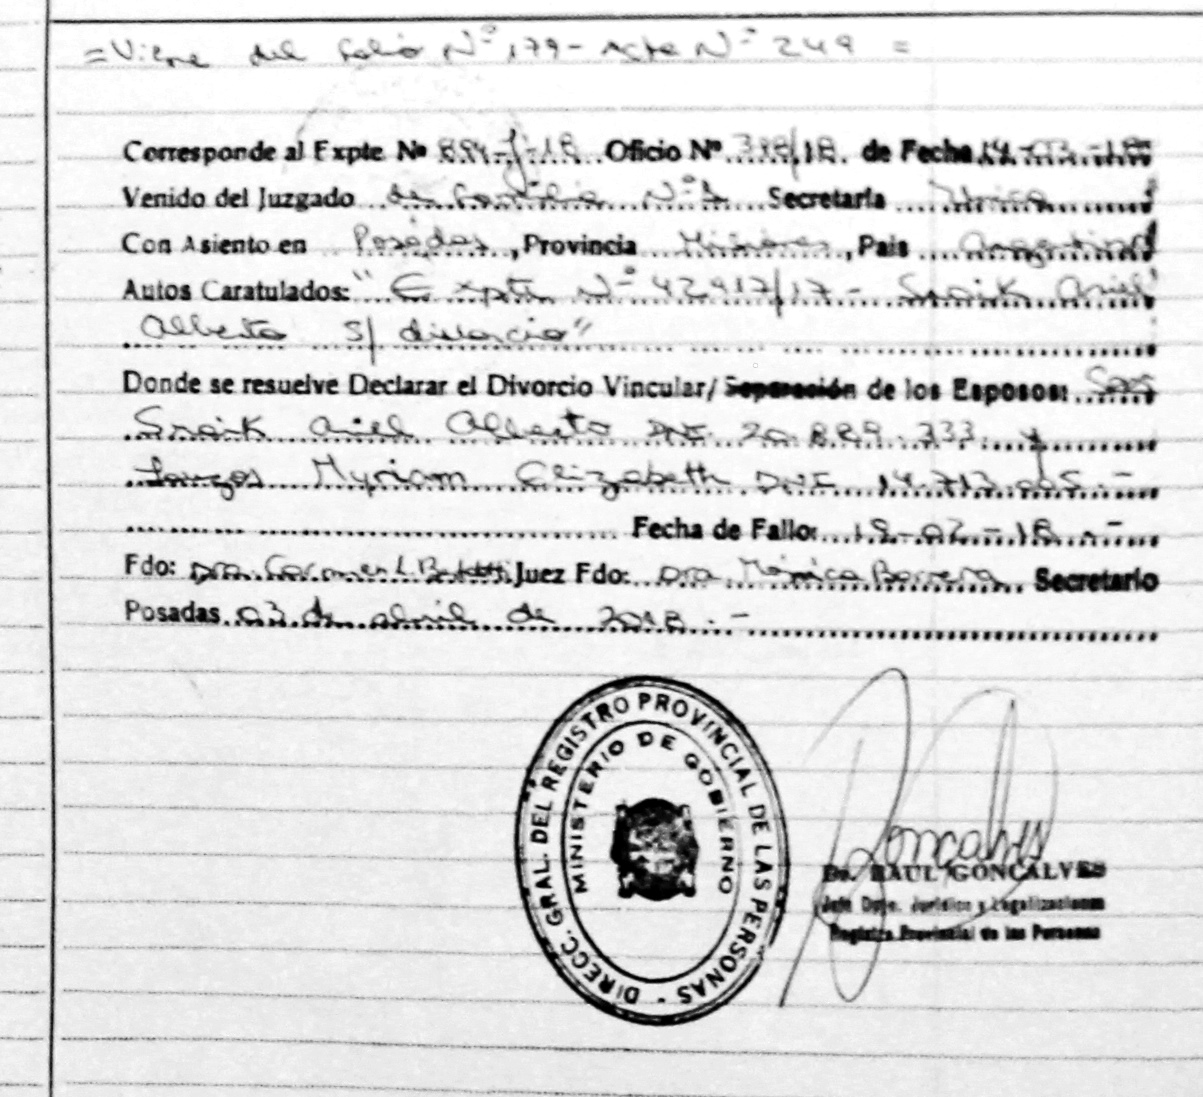 = Viene del folio Nº 179 - Acta Nº 249 =
Corresponde al Expte Nº 884-J-18 Oficio Nº 318/18. de Fecha 14-03-18
Venido del Juzgado de Familia Nº Secretaría Única
Con Asiento en Posadas, Provincia Misiones, Pais Argentina
Autos Caratulados: "Expte Nº 42917/17 - Snaik Ariel
Alberto S/ divorcio"
Donde se resuelve Declarar el Divorcio Vincular/ Separación de los Esposos:
Snaik Ariel Alberto DNI. 20.889.333. y
Myriam Elizabeth DNI 14.713.005.-
Fecha de Fallo: 19-02-18.-
Fdo: Dra. Carmen L. Juez Fdo: Dra Mónica Barrera Secretario
Posadas 03 de abril de 2018.-
DIRECC. GRAL. DEL REGISTRO PROVINCIAL DE LAS PERSONAS -
MINISTERIO DE GOBIERNO
Goncalves
Dr. RAUL GONCALVES
Jefe Dpto. Jurídico y Legalizaciones
Registro Provincial de las Personas